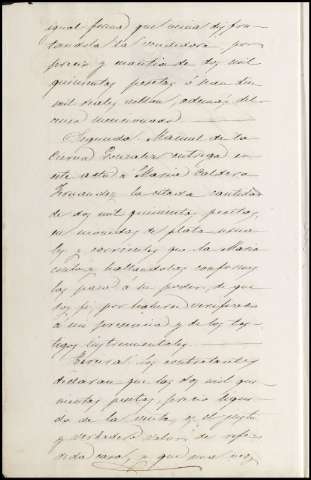 igual forma que venia disfru-
tandola la vendedora, por
precio y cuantia de dos mil
quinientas pesetas ó sean diez
mil reales vellon, además del
censo mencionado
Segunda. Manuel de la
Cuerva Gonzalez entrega en
este acto á Maria Caldera
Fernandez la citada cantidad
de dos mil quinientas pesetas,
en monedas de plata usua-
les y corrientes que la Maria
cuenta y hallandolas conformes
las pasa á su poder, de que
doy fé, por haberse verificado
á mi presencia y de los tes-
tigos instrumentales.
Tercera. Los contratantes
declaran que las dos mil qui-
nientas pesetas, precio liqui-
do de la venta, es el justo
y verdadero valor de refe-
rida casa, y que una vez